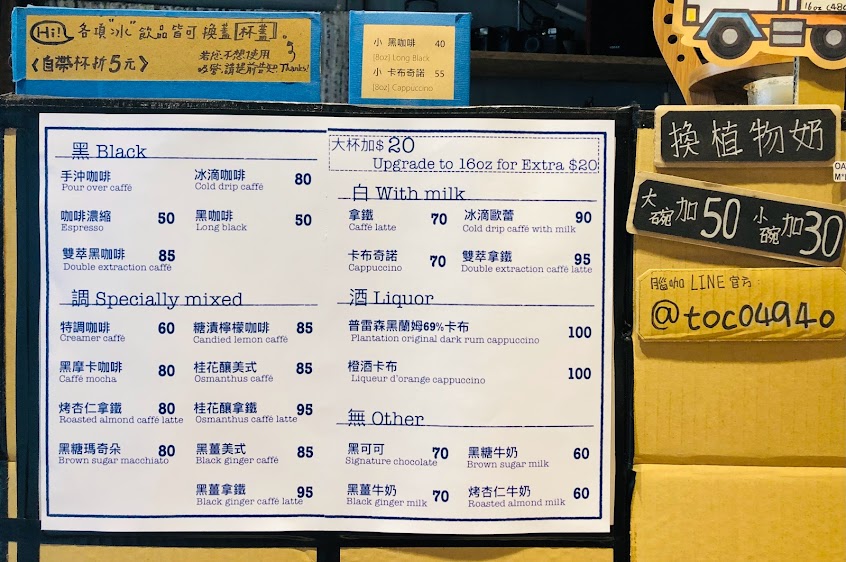 Hi! 各項"冰"飲品皆可換蓋杯蓋。
《自帶杯折5元》
Thanks!
小 黑咖啡 40
[8oz] Long Black
小 卡布奇諾 55
[8oz] Cappuccino
黑 Black
手沖咖啡
Pour over caffè
冰滴咖啡 80
Cold drip caffè
咖啡濃縮 50
Espresso
黑咖啡 50
Long black
雙萃黑咖啡 85
Double extraction caffè
調 Specially mixed
特調咖啡 60
Creamer caffè
糖漬檸檬咖啡 85
Candied lemon caffè
黑摩卡咖啡 80
Caffè mocha
桂花釀美式 85
Osmanthus caffè
烤杏仁拿鐵 80
Roasted almond caffè latte
桂花釀拿鐵 95
Osmanthus caffè latte
黑糖瑪奇朵 80
Brown sugar macchiato
黑薑美式 85
Black ginger caffè
黑薑拿鐵 95
Black ginger caffè latte
大杯加$ 20
Upgrade to 16oz for Extra $20
白 With milk
拿鐵 70
Caffè latte
冰滴歐蕾 90
Cold drip caffè with milk
卡布奇諾 70
Cappuccino
雙萃拿鐵 95
Double extraction caffè latte
酒 Liquor
普雷森黑蘭姆69%卡布 100
Plantation original dark rum cappuccino
橙酒卡布 100
Liqueur d'orange cappuccino
無 Other
黑可可 70
Signature chocolate
黑糖牛奶 60
Brown sugar milk
黑薑牛奶 70
Black ginger milk
烤杏仁牛奶 60
Roasted almond milk
換植物奶
大碗加50 小碗加30
腦咖 LINE 官方
@toco494o